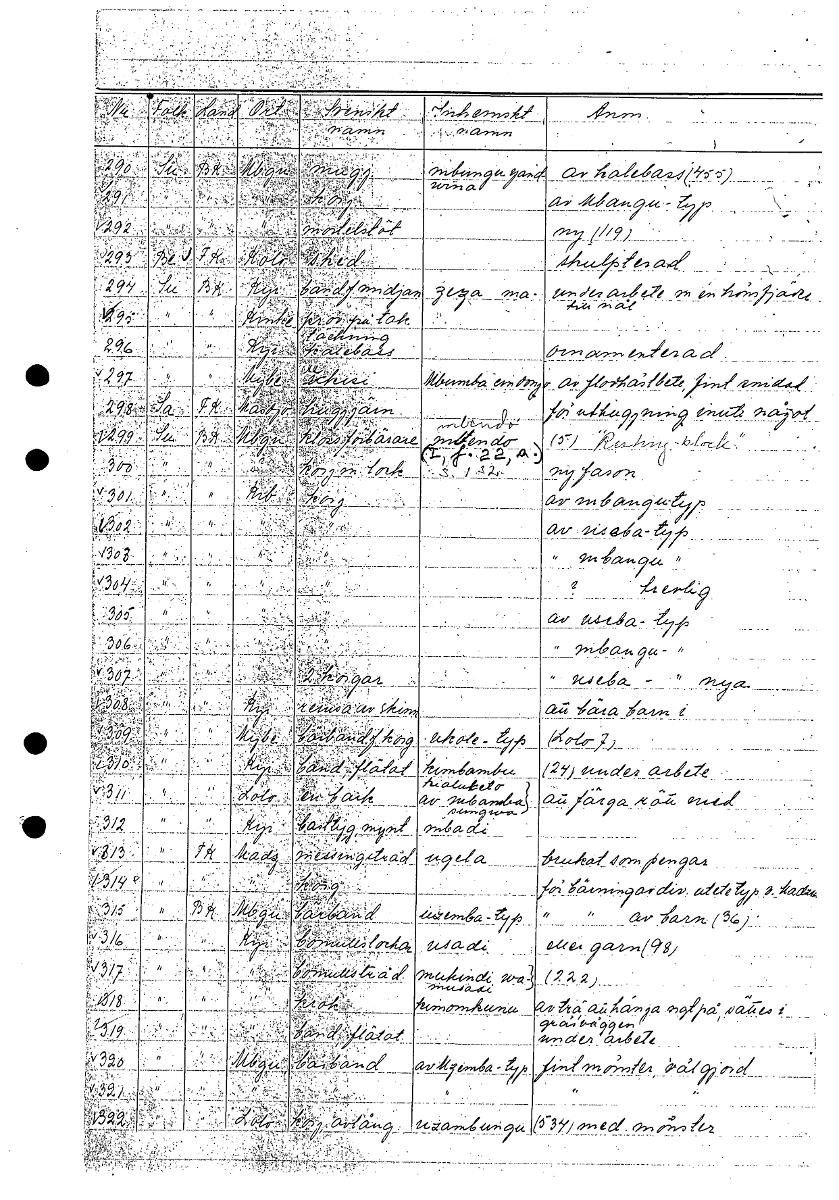 Nr Folk Land Ort Svenskt namn Inhemskt namn Anm.
290 Su BK Mbgu mugg mbungu yand wina av kalebass (455)
291 " " " korg av Mbangu-typ
v292 " " " mortelstöt ny (119)
v293 Be FK Kolo sked skulpterad
294 Su BK Kyi band f midjan zeza ma- under arbete m en hönsfjäder till nål
v295 " " Kinke prov på taktäckning
296 " " Kyi kalebass ornamenterad
v297 " " Mbumba av flodhästbete, fint snidat
298 FK huggjärn för uthuggning inuti något
v299 Su BK Mbgu mbendo
mbendo (I, f. 22, a.) (5) "Rushing-block"
300 " " " korg m lock s. 132. ny fason
v301 " " Kib korg av mbangu-typ
v302 " " " " av nseba-typ
v303 " " " " " mbangu "
v304 " " " " ? trevlig
305 " " " " av nseba-typ
306 " " " " " mbangu- "
v307 " " " 2 korgar " nseba - " nya
v308 " " Kyi remsa av skinn att bära barn i
v309 " " bärband f korg nkole-typ (Lolo 7)
v310 " " Kyi band flätat kimbambu (24) under arbete
v311 " " Lolo en bark av mbamba att färga rött med
312 " " Kyi basttyg, mynt mbadi
v313 " FK Madz messingstråd ngela brukat som pengar
v314 " " " korg för bärningar div.
v315 " BK Mbgu bärband nzemba-typ " " av barn (36)
v316 " " Kyi bomullslockar nsadi eller garn (98)
v317 " " " bomullstråd mukindi wa- musadi (222)
v318 " " " krok kimomkunu av trä att hänga ngt på, sättes i gräsväggen
v319 " " " band flätat under arbete
v320 " " Mbgu bärband av Nzemba-typ fint mönster, välgjord
v321 " " " " " " "
v322 " " Lolo korg avlång nzambungu (534) med mönster